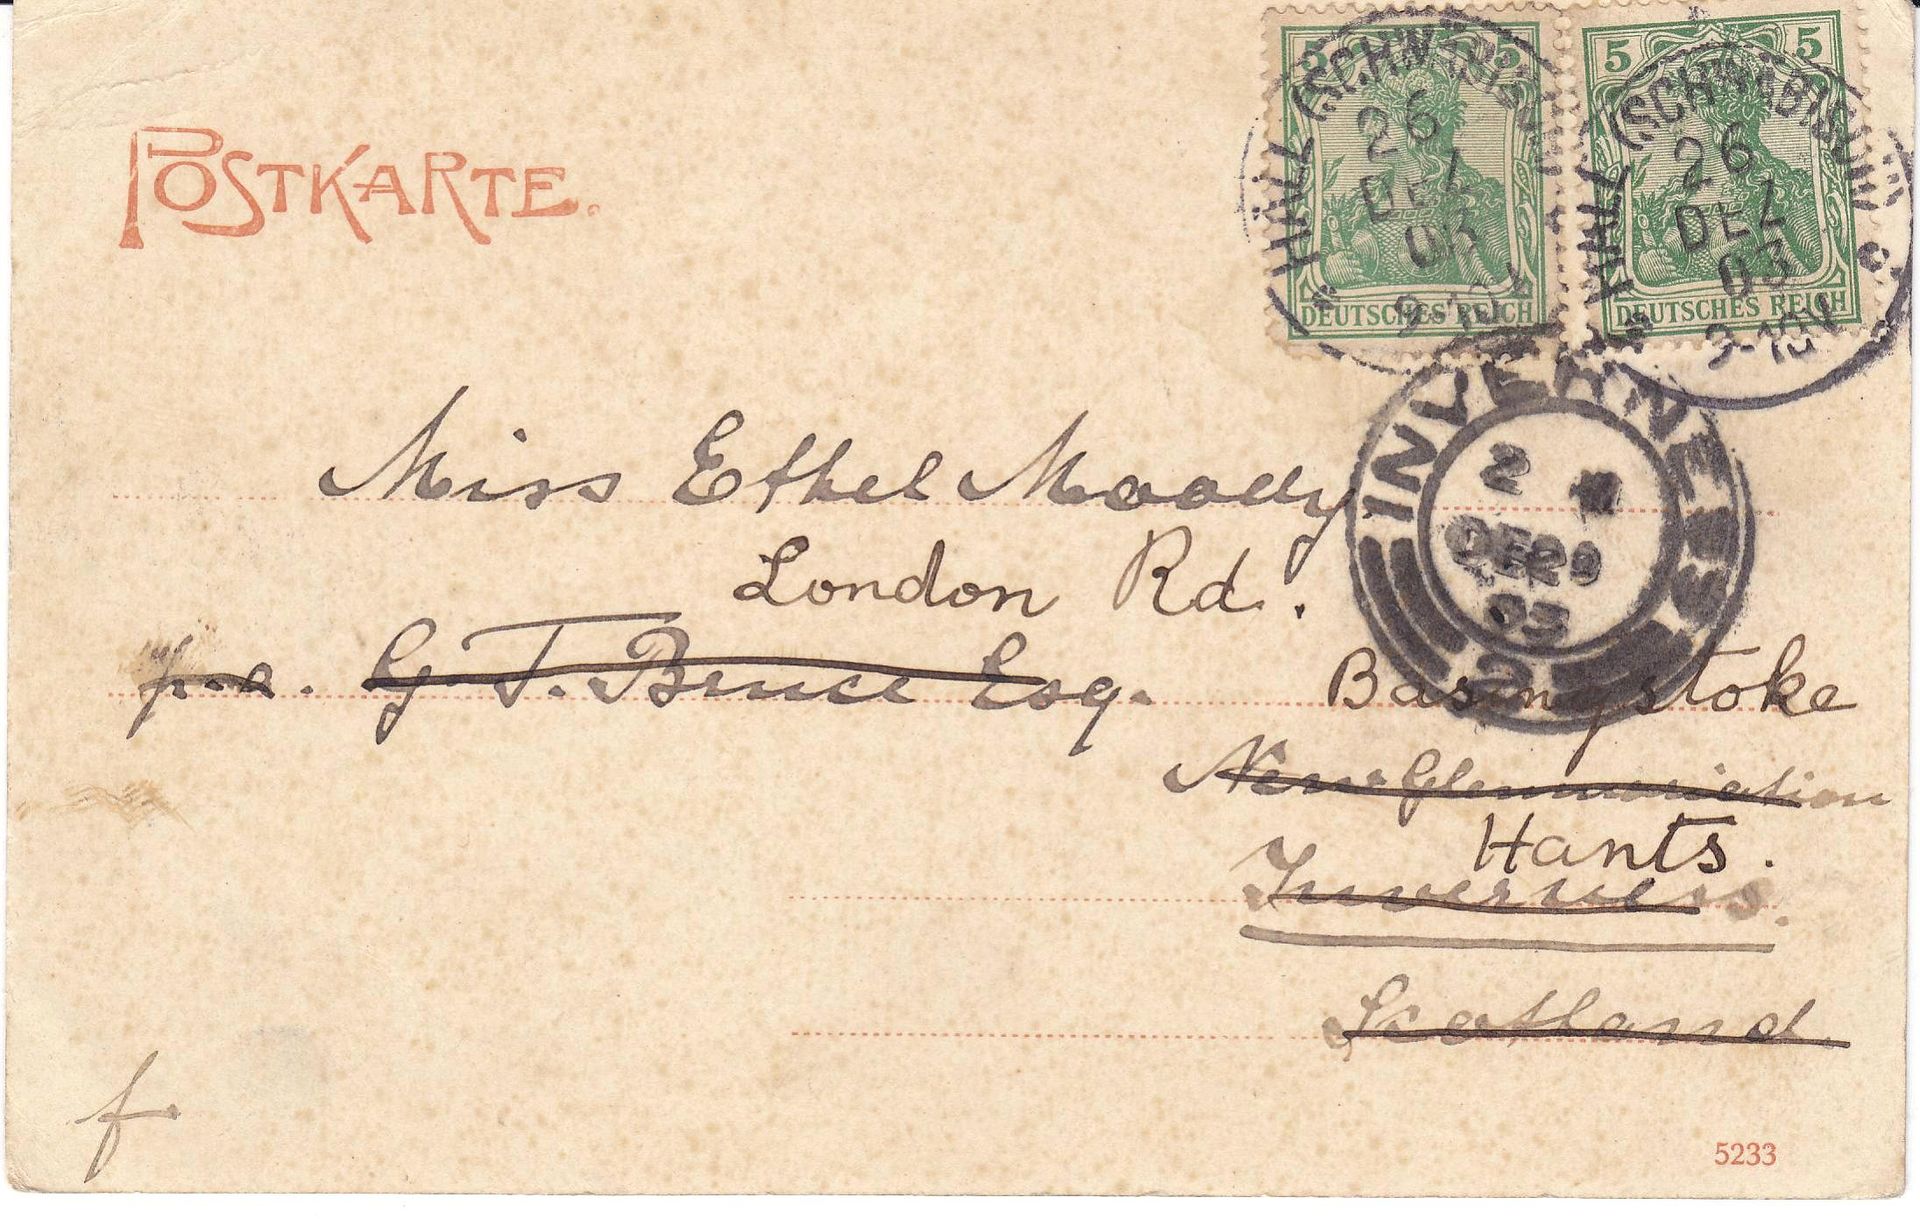 POSTKARTE.
5 5
DEUTSCHES REICH
HALL (SCHWÄBISCH)
26
DEZ
03
9-10V
5 5
DEUTSCHES REICH
HALL (SCHWÄBISCH)
26
DEZ
03
9-10V
c
INVERNESS
2
DE 29
03
2
Miss Ethel Moody
London Rd.
G. T. Bruce Esq.
Basingstoke
Hants.
Inverness.
Scotland.
f
5233